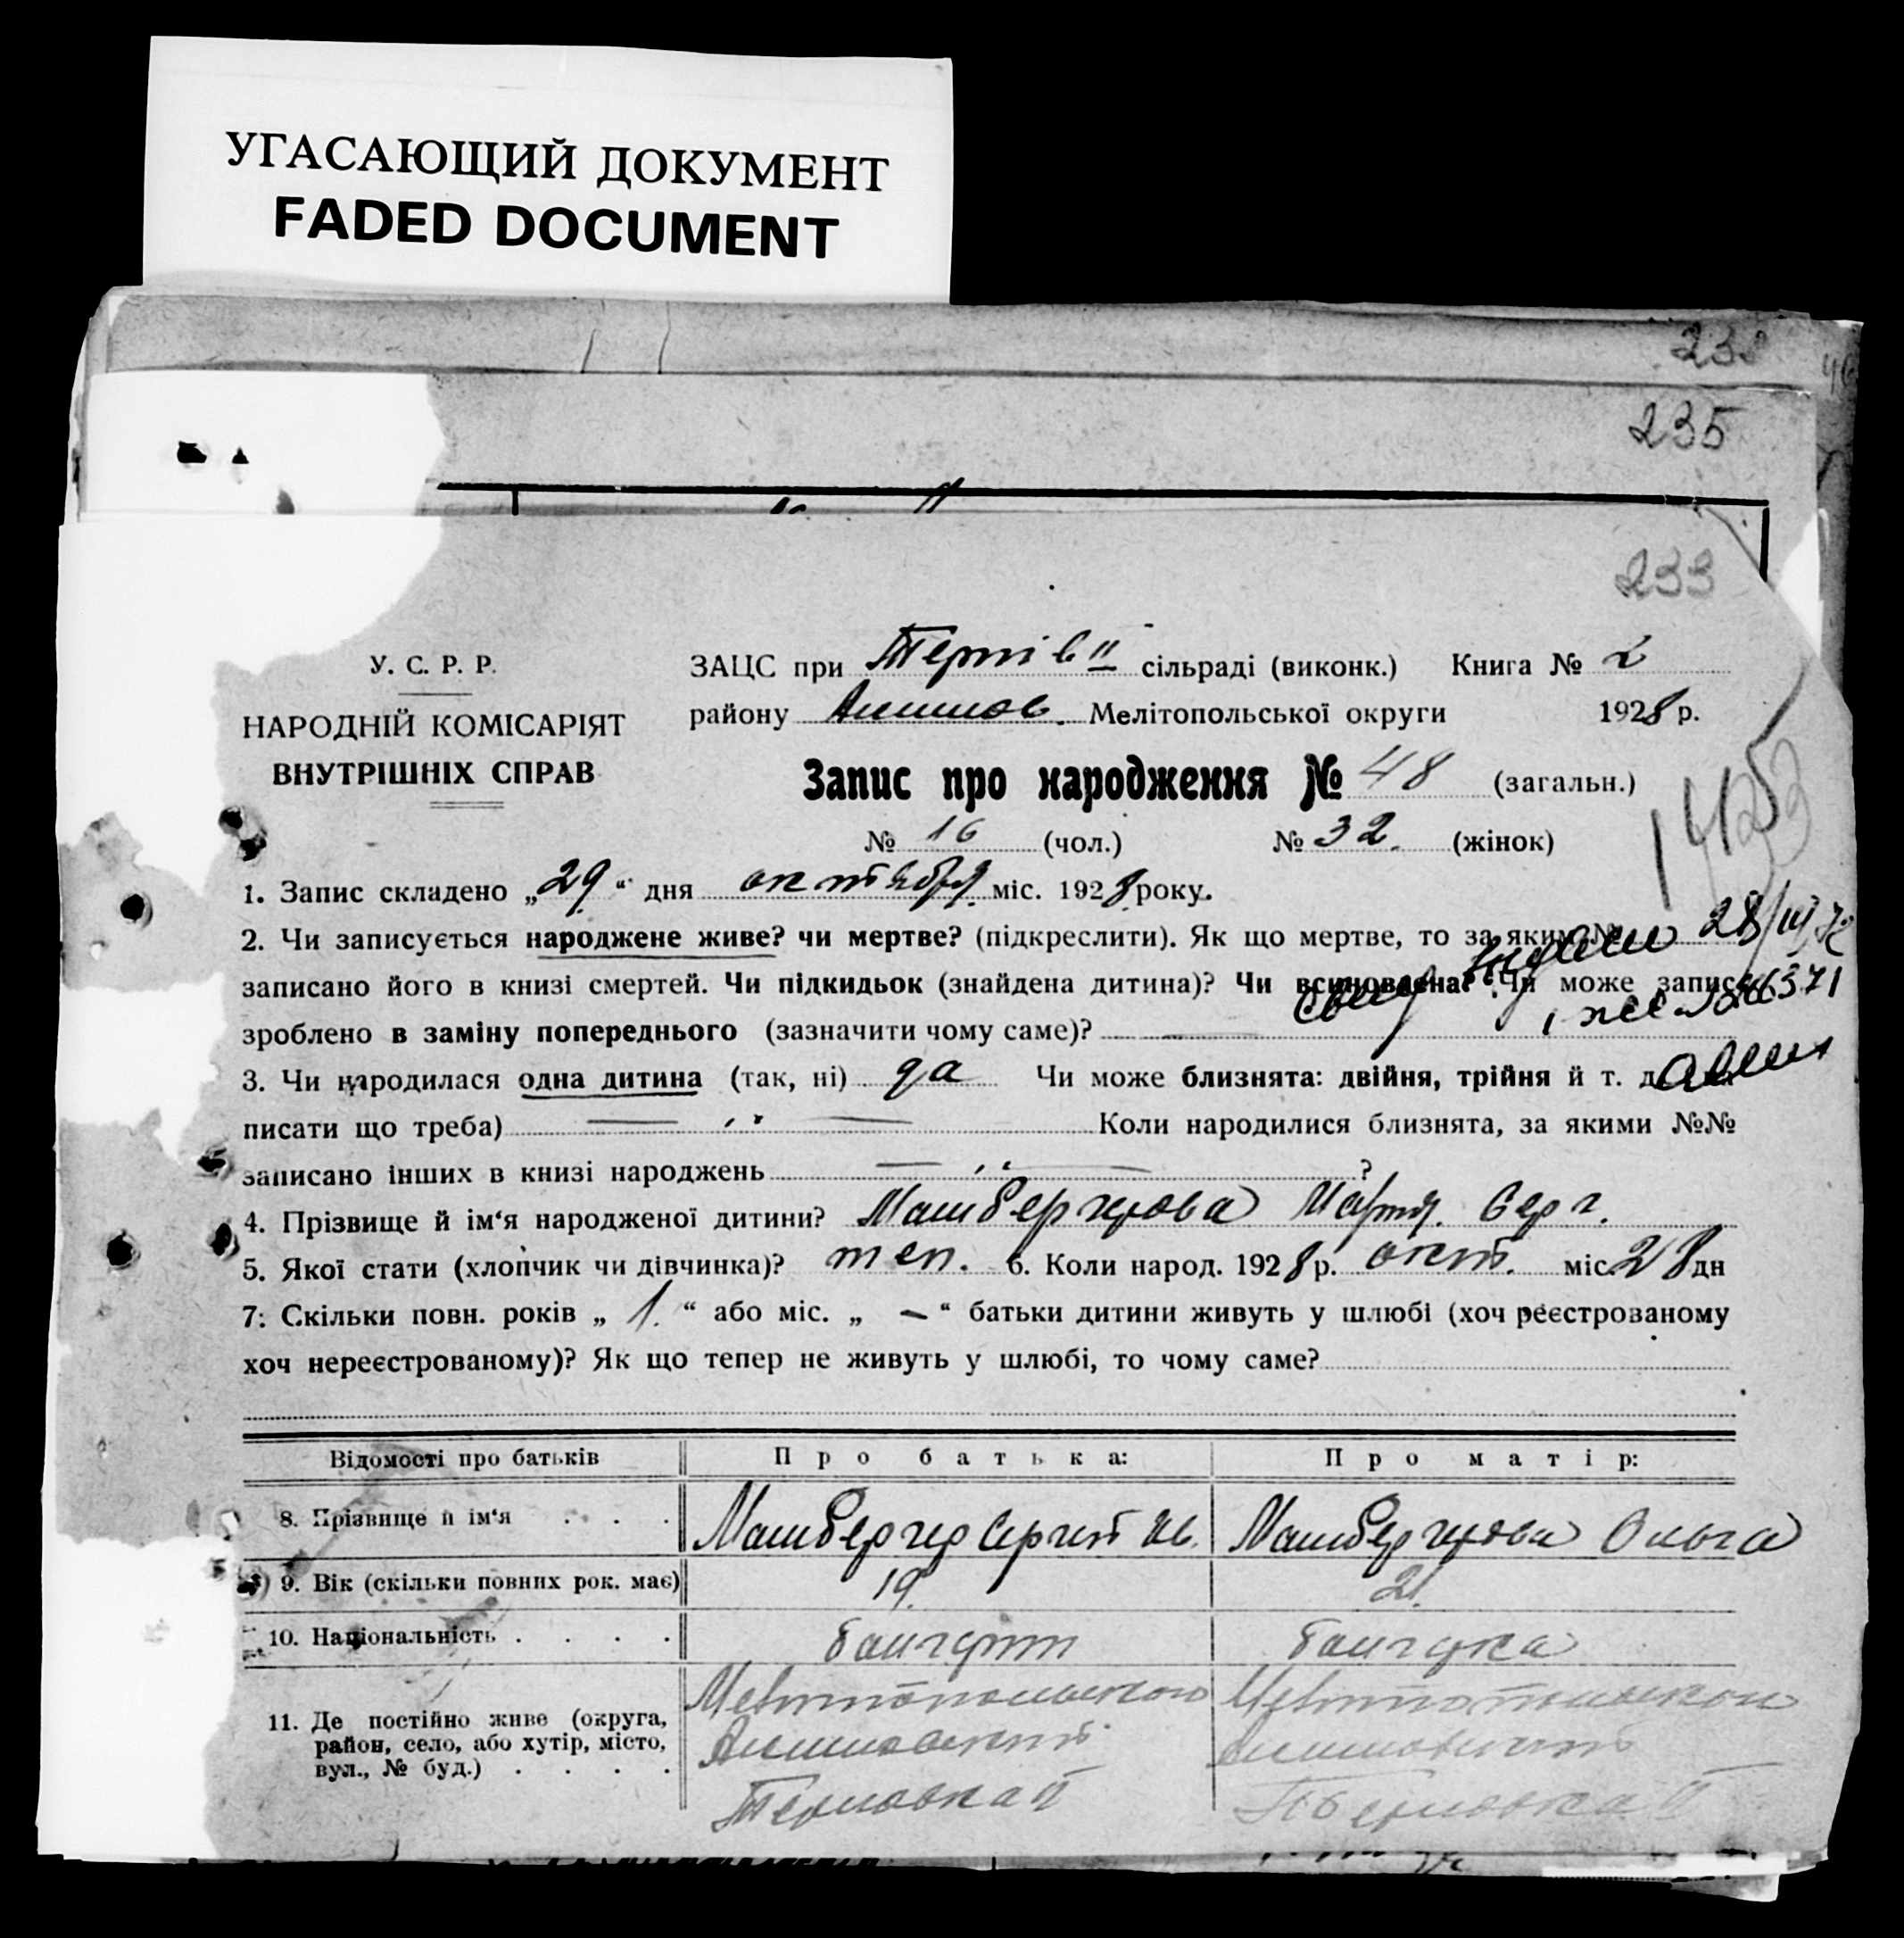 УГАСАЮЩИЙ ДОКУМЕНТ
FADED DOCUMENT
235
233
У. С. Р. Р.
НАРОДНІЙ КОМІСАРІЯТ
ВНУТРІШНІХ СПРАВ
ЗАЦС при Терпів II сільраді (виконк.) Книга № 2
району Акимов. Мелітопольської округи 1928 р.
Запис про народження № 48 (загальн.)
№ 16 (чол.) № 32. (жінок)
1. Запис складено „29“ дня октября міс. 1928 року.
2. Чи записується народжене живе? чи мертве? (підкреслити). Як що мертве, то за яким №
28/III
записано його в книзі смертей. Чи підкидьок (знайдена дитина)? Чи всиновлена? Чи може запис
зроблено в заміну попереднього (зазначити чому саме)?
3. Чи народилася одна дитина (так, ні) да Чи може близнята: двійня, трійня й т. д.
писати що треба) — „ — Коли народилися близнята, за якими №№
записано інших в книзі народжень — „ — ?
4. Прізвище й ім‘я народженої дитини? Серг.
5. Якої стати (хлопчик чи дівчинка)? жен. 6. Коли народ. 1928 р. окт. міс. 28 дн
7. Скільки повн. років „ 1. “ або міс. „ — “ батьки дитини живуть у шлюбі (хоч реєстрованому
хоч нереєстрованому)? Як що тепер не живуть у шлюбі, то чому саме?
Відомості про батьків Про батька: Про матір:
8. Прізвище й ім‘я . . . Сергей Ив. Ольга
9. Вік (скільки повних рок. має) 19. 21.
10. Національність . . . . болгарин болгарка
11. Де постійно живе (округа, Мелитопольской Мелитопольской
район, село, або хутір, місто, Акимовский Акимовский
вул., № буд.) . . . .